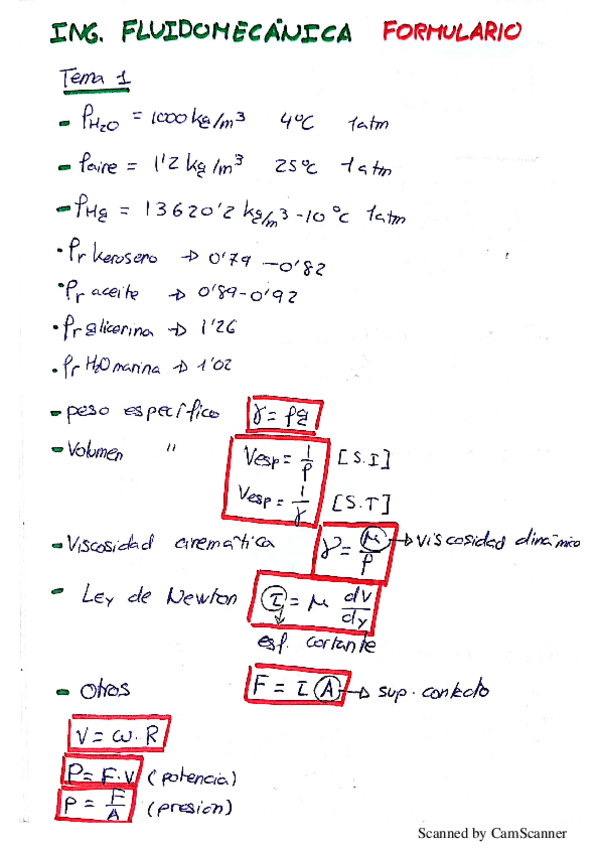 ING. FLUIDOMECÁNICA FORMULARIO
Tema 1
- ρH₂O = 1000 kg/m³ 4ºC 1atm
- ρaire = 1'2 kg/m³ 25ºC 1atm
- ρHg = 13620'2 kg/m³ -10ºC 1atm
· ρr kerosero → 0'79 - 0'82
· ρr aceite → 0'89-0'92
· ρr glicerina → 1'26
· ρr H₂O marina → 1'02
- peso específico γ = ρg
- Volumen " Vesp = 1/ρ [S.I]
Vesp = 1/γ [S.T]
- Viscosidad cinemática γ = μ/ρ → viscosidad dinámica
- Ley de Newton τ = μ dv/dy
esf. cortante
F = τ A → sup. contacto
- Otros
V = ω · R
P = F · V (potencia)
P = F/A (presion)
Scanned by CamScanner